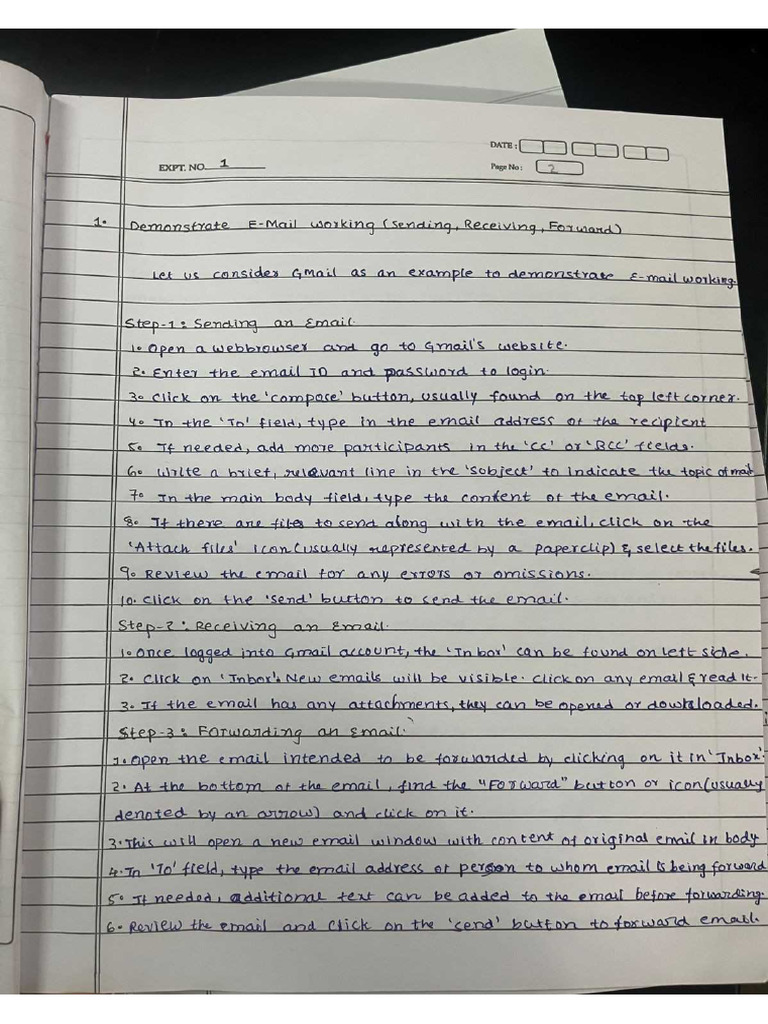 DATE :
EXPT. NO. 1
Page No : 2
1. Demonstrate E-Mail working (Sending, Receiving, Forward)
Let us consider Gmail as an example to demonstrate E-mail working
Step-1: Sending an Email.
1. Open a webbrowser and go to Gmail's website.
2. Enter the email ID and password to login.
3. Click on the 'compose' button, usually found on the top left corner.
4. In the 'To' field, type in the email address of the recipient
5. If needed, add more participants in the 'CC' or 'BCC' fields.
6. Write a brief, relevant line in the 'Sobject' to indicate the topic of mail
7. In the main body field, type the content of the email.
8. If there are files to send along with the email, click on the
'Attach files' icon (usually represented by a paperclip) & select the files.
9. Review the email for any errors or omissions.
10. Click on the 'send' button to send the email.
Step-2: Receiving an Email.
1. Once logged into Gmail account, the 'Inbox' can be found on left side.
2. Click on 'Inbox'. New emails will be visible. Click on any email & read it.
3. If the email has any attachments, they can be opened or downloaded.
Step-3: Forwarding an Email.
1. Open the email intended to be forwarded by clicking on it in 'Inbox'.
2. At the bottom of the email, find the "Forward" button or icon (usually
denoted by an arrow) and click on it.
3. This will open a new email window with content of original email in body
4. In 'To' field, type the email address of person to whom email is being forward
5. If needed, additional text can be added to the email before forwarding.
6. Review the email and click on the 'send' button to forward email.